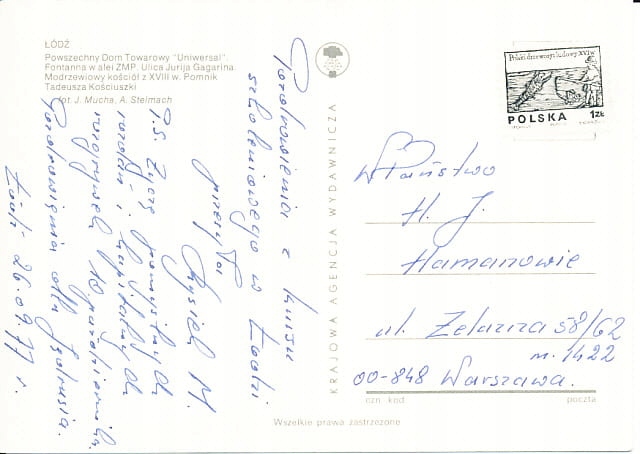 ŁÓDŹ
Powszechny Dom Towarowy "Uniwersal".
Fontanna w alei ZMP. Ulica Jurija Gagarina.
Modrzewiowy kościół z XVIII w. Pomnik
Tadeusza Kościuszki
fot. J. Mucha, A. Stelmach
Pozdrowienia z kursu
szkoleniowego w Łodzi
przesyła
Krysiek M.
P.S. Życzę pomyślnych
i kapitalnych
rozgrywek
Pozdrowienia dla
Łódź 26.09.77 r.
KRAJOWA AGENCJA WYDAWNICZA
Polski drzeworyt ludowy XVI w
POLSKA 1 ZŁ
W Państwo
H. J.
Hamanowie
ul. Żelazna 58/62
m. 1422
00-848 Warszawa.
ozn. kod poczta
Wszelkie prawa zastrzeżone